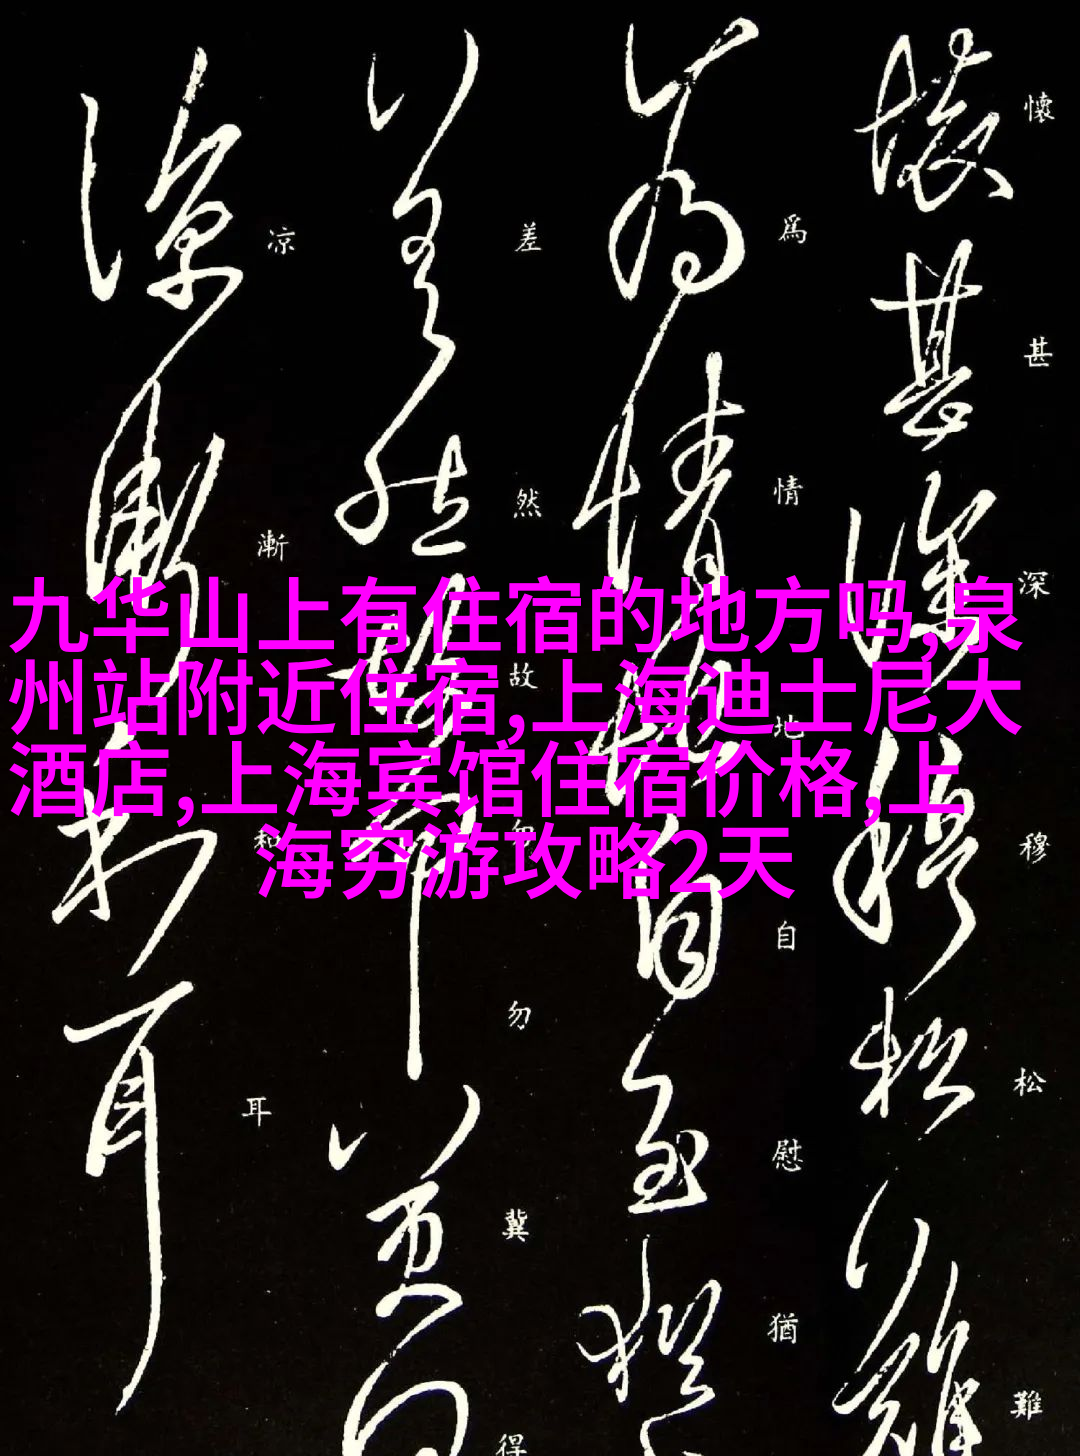 懷甚深穆松難
爲情地自慰猶
差然故勿冀得
凉漸和耳
九华山上有住宿的地方吗,泉
州站附近住宿,上海迪士尼大
酒店,上海宾馆住宿价格,上
海穷游攻略2天